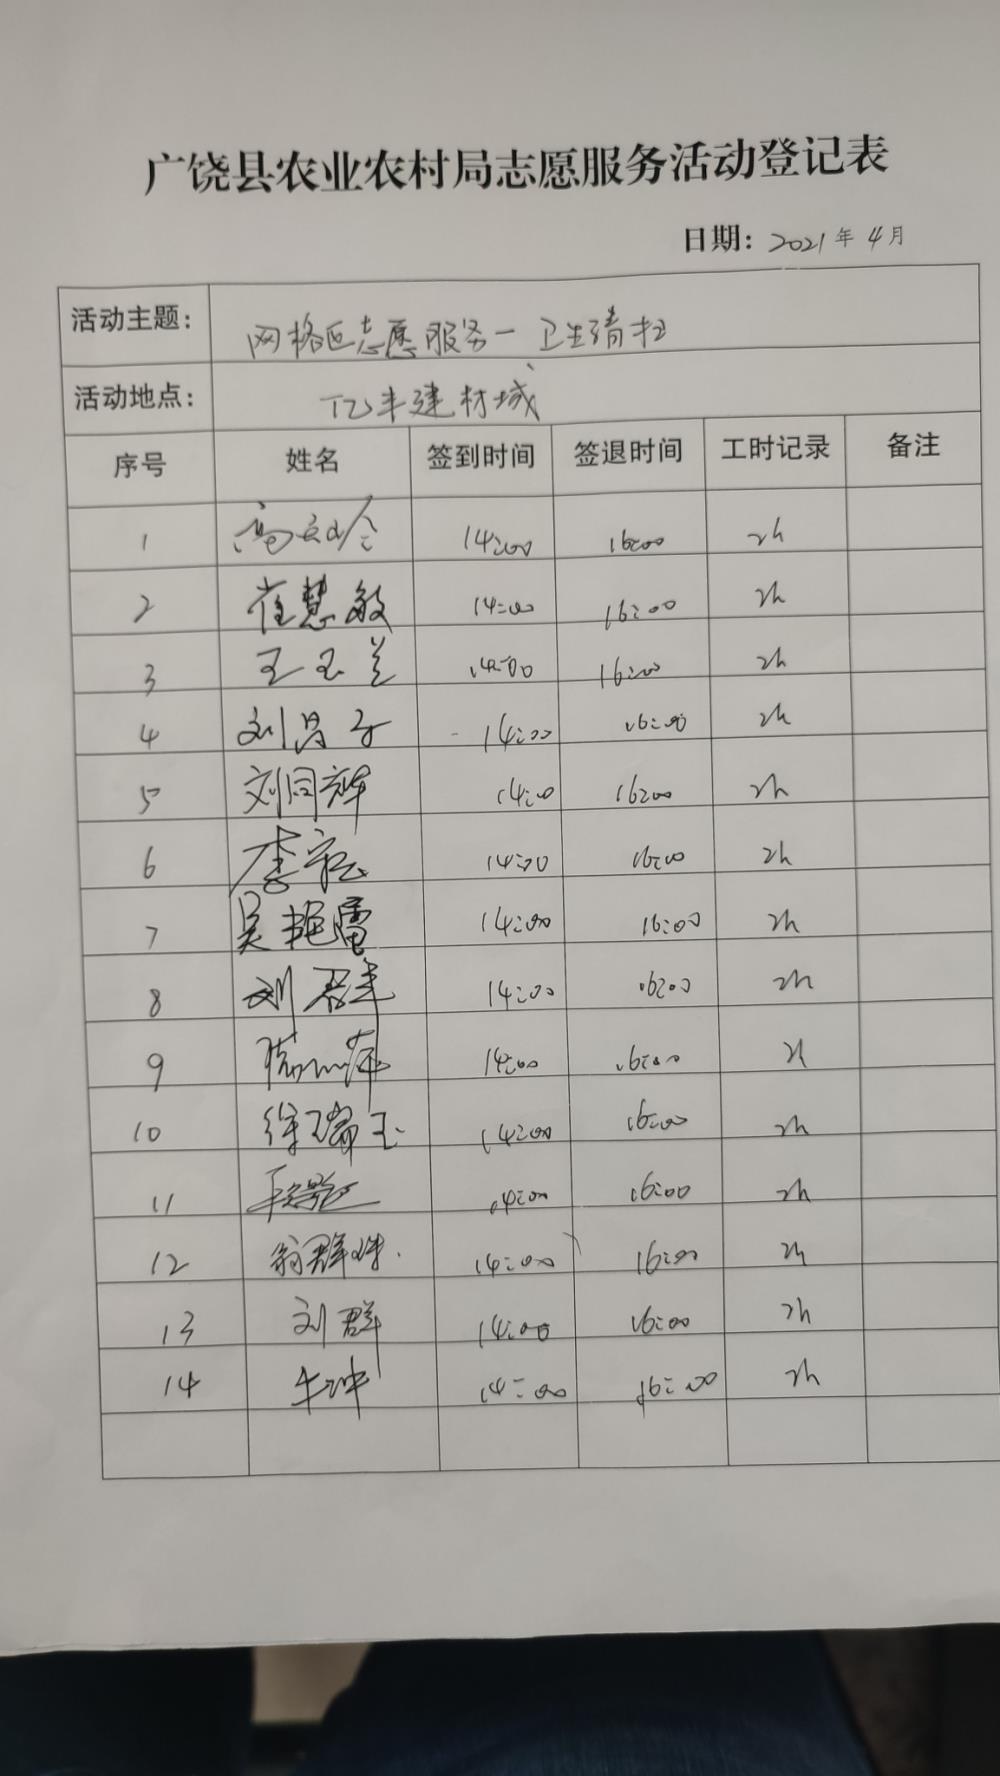 广饶县农业农村局志愿服务活动登记表
日期: 2021年4月
活动主题: 网格区志愿服务—卫生清扫
活动地点: 亿丰建材城
序号 姓名 签到时间 签退时间 工时记录 备注
1 14:00 16:00 2h
2 崔慧敏 14:00 16:00 2h
3 王玉兰 14:00 16:00 2h
4 刘昌子 14:00 16:00 2h
5 刘同辉 14:00 16:00 2h
6 李 14:00 16:00 2h
7 吴艳雷 14:00 16:00 2h
8 刘君丰 14:00 16:00 2h
9 14:00 16:00 2h
10 徐瑞玉 14:00 16:00 2h
11 14:00 16:00 2h
12 翁群姝 14:00 16:00 2h
13 刘群 14:00 16:00 2h
14 牛坤 14:00 16:00 2h